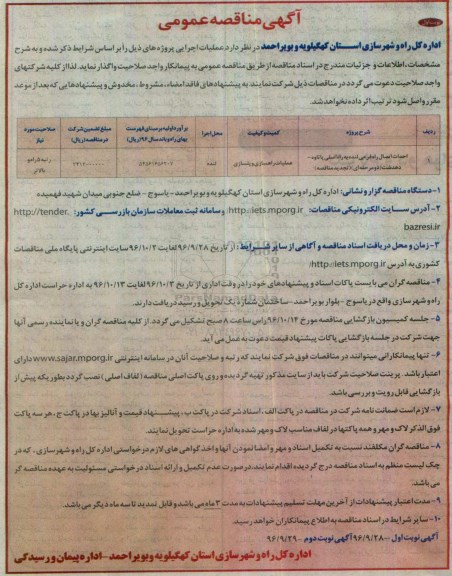 آگهی مناقصه عمومی
اداره کل راه و شهرسازی استان کهگیلویه و بویراحمد در نظر دارد عملیات اجرایی پروژه های ذیل را بر اساس شرایط ذکر شده و به شرح
مشخصات، اطلاعات و جزئیات مندرج در اسناد مناقصه از طریق مناقصه عمومی به پیمانکار واجد صلاحیت واگذار نماید. لذا از کلیه شرکتهای
واجد صلاحیت دعوت می گردد در مناقصات ذیل شرکت نمایند. به پیشنهادهای فاقد امضاء، مشروط، مخدوش و پیشنهادهایی که بعد از موعد
مقرر واصل شود ترتیب اثر داده نخواهد شد.
ردیف شرح پروژه کمیت و کیفیت محل اجرا برآورد اولیه بر مبنای فهرست بهای راه و باند سال ۹۶ (ریال) مبلغ تضمین شرکت در مناقصه (ریال) صلاحیت مورد نیاز
عملیات راهسازی و پلسازی رتبه ۵ راه و بالاتر
۱- دستگاه مناقصه گزار و نشانی: اداره کل راه و شهرسازی استان کهگیلویه و بویراحمد - یاسوج - ضلع جنوبی میدان شهید فهمیده
۲- آدرس سایت الکترونیکی مناقصات: http://iets.mporg.ir و سامانه ثبت معاملات سازمان بازرسی کشور: http://tender.
bazresi.ir
۳- زمان و محل دریافت اسناد مناقصه و آگاهی از سایر شرایط: از تاریخ ۹۶/۹/۲۸ لغایت ۹۶/۱۰/۲ سایت اینترنتی پایگاه ملی مناقصات
کشوری به آدرس http://iets.mporg.ir
۴- مناقصه گران می بایست پاکات اسناد و پیشنهادهای خود را در وقت اداری از تاریخ ۹۶/۱۰/۳ لغایت ۹۶/۱۰/۱۳ به اداره حراست اداره کل
راه و شهرسازی واقع در یاسوج - بلوار بویراحمد - ساختمان شماره یک تحویل و رسید دریافت دارند.
۵- جلسه کمیسیون بازگشایی مناقصه مورخ ۹۶/۱۰/۱۴ راس ساعت ۸ صبح تشکیل می گردد. از کلیه مناقصه گران و یا نماینده رسمی آنها
جهت شرکت در جلسه بازگشایی پاکات پیشنهاد قیمت دعوت به عمل می آید.
۶- تنها پیمانکارانی میتوانند در مناقصات فوق شرکت نمایند که رتبه و صلاحیت آنان در سامانه اینترنتی www.sajar.mporg.ir دارای
اعتبار باشد. پرینت صلاحیت شرکت باید از سایت مذکور تهیه گردیده و روی پاکت اصلی مناقصه (لفاف اصلی) نصب گردد بطوریکه پیش از
بازگشایی قابل رویت و بررسی باشد.
۷- لازم است ضمانت نامه شرکت در مناقصه در پاکت الف، اسناد شرکت در پاکت ب، پیشنهاد قیمت و آنالیز بها در پاکت ج، هر سه پاکت
فوق الذکر لاک و مهر و همه پاکتها در لفاف مناسب لاک و مهر شده به اداره حراست تحویل نمایند.
۸- مناقصه گران مکلفند نسبت به تکمیل اسناد و مهر و امضا نمودن آنها و اخذ گواهی های لازم درخواستی اداره کل راه و شهرسازی، که در
چک لیست منظم به اسناد مناقصه درج گردیده اقدام نمایند. در صورت عدم تکمیل و ارائه اسناد درخواستی مسئولیت به عهده مناقصه گر
می باشد.
۹- مدت اعتبار پیشنهادات از آخرین مهلت تسلیم پیشنهادات به مدت ۳ ماه می باشد و قابل تمدید تا سه ماه دیگر می باشد.
۱۰- سایر شرایط در اسناد مناقصه به اطلاع پیمانکاران خواهد رسید.
آگهی نوبت اول - ۹۶/۹/۲۸ آگهی نوبت دوم - ۹۶/۹/۲۹
اداره کل راه و شهرسازی استان کهگیلویه و بویراحمد - اداره پیمان و رسیدگی